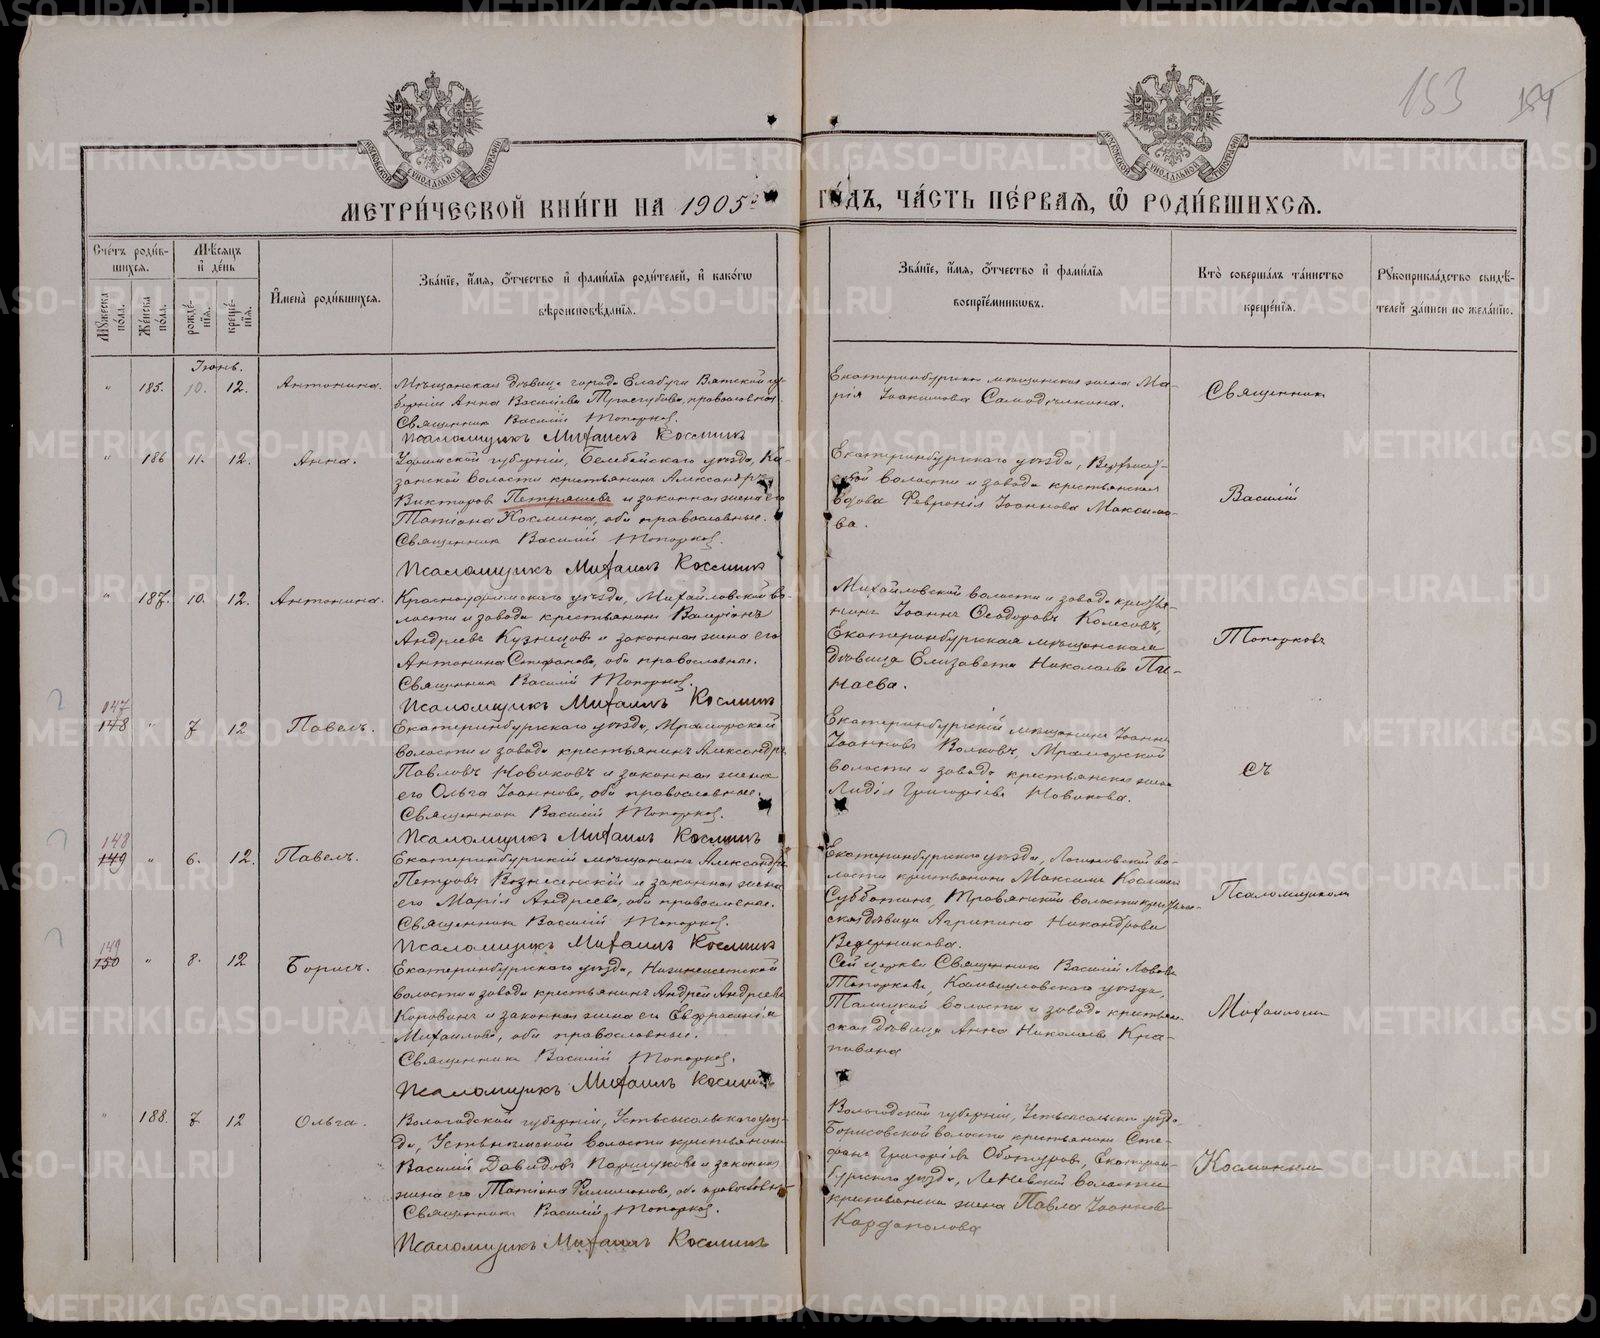 153 154
МЕТРИ́ЧЕСКОЙ КНИ́ГИ НА 1905й ГО́ДЪ, ЧА́СТЬ ПЕ́РВАЯ, Ѽ РОДИ́ВШИХСЯ.
Сче́тъ роди́вшихся.
Мꙋ́жеска по́ла.
Же́нска по́ла.
Мѣ́сяцъ и҆ де́нь
рожде́нїя.
креще́нїя.
И҆мена̀ роди́вшихся.
Зва́нїе, и҆́мя, ѻ҆́тчество и҆ фами́лїя роди́телей, и҆ како́гѡ вѣроисповѣ́данїя.
Зва́нїе, и҆́мя, ѻ҆́тчество и҆ фами́лїя воспрїе́мниковъ.
Кто̀ соверша́лъ та́инство креще́нїя.
Рꙋкоприкла́дство свидѣ́телей за́писи по жела́нїю.
Іюнь.
" 185. 10. 12. Антонина.
Мѣщанская дѣвица города Елабуги Вятской гу-
берніи Анна Василіева, православная.
Священникъ Василій Топорковъ.
Псаломщикъ Михаилъ Косминъ
Екатеринбургская мѣщанская жена Ма-
рія Іоакимова
Священникъ
" 186 11. 12. Анна.
Уфимской губерніи, Белебейскаго уѣзда, Ка-
занской волости крестьянинъ Александръ
Викторовъ Петряшевъ и законная жена его
Татіана Космина, оба православные.
Священникъ Василій Топорковъ.
Псаломщикъ Михаилъ Косминъ
Екатеринбургскаго уѣзда, Верхъисет-
ской волости и завода крестьянская
вдова Февронія Іоаннова Максимо-
ва.
Василій
" 187. 10. 12. Антонина.
Красноуфимскаго уѣзда, Михайловской во-
лости и завода крестьянинъ Валеріанъ
Андреевъ Кузнецовъ и законная жена его
Антонина Стефанова, оба православные.
Священникъ Василій Топорковъ.
Псаломщикъ Михаилъ Косминъ
Михайловской волости и завода крестья-
нинъ Іоаннъ Ѳеодоровъ Колесовъ,
Екатеринбургская мѣщанская
дѣвица Елизавета Николаева Пи-
наева.
Топорковъ
147
148 " 7 12 Павелъ.
Екатеринбургскаго уѣзда, Мраморской
волости и завода крестьянинъ Александръ
Павловъ Новиковъ и законная жена
его Ольга Іоаннова, оба православные.
Священникъ Василій Топорковъ.
Псаломщикъ Михаилъ Косминъ
Екатеринбургскій мѣщанинъ Іоаннъ
Іоанновъ Волковъ, Мраморской
волости и завода крестьянская жена
Лидія Григоріева Новикова.
съ
148
149 " 6. 12. Павелъ.
Екатеринбургскій мѣщанинъ Александръ
Петровъ Вознесенскій и законная жена
его Марія Андреева, оба православные.
Священникъ Василій Топорковъ.
Псаломщикъ Михаилъ Косминъ
Екатеринбургскаго уѣзда, Логиновской во-
лости крестьянинъ Максимъ Косминъ
Субботинъ, Травянской волости крестьян-
ская дѣвица Агрипина Никандрова
Ведерникова.
Псаломщикомъ
149
150 " 8. 12 Борисъ.
Екатеринбургскаго уѣзда, Нижнеисетской
волости и завода крестьянинъ Андрей Андреевъ
Коровинъ и законная жена его Евфросинія
Михайлова, оба православные.
Священникъ Василій Топорковъ.
Псаломщикъ Михаилъ Косминъ
Сей церкви Священникъ Василій Львовъ
Топорковъ, Камышловскаго уѣзда,
Талицкой волости и завода крестьян-
ская дѣвица Анна Николаева
Михаиломъ
" 188. 7 12 Ольга.
Вологодской губерніи, Устьсысольскаго уѣз-
да, Устьнемской волости крестьянинъ
Василій Давидовъ Паршуковъ и законная
жена его Татіана Филимонова, оба православные.
Священникъ Василій Топорковъ.
Псаломщикъ Михаилъ Косминъ
Вологодской губерніи, Устьсысольскаго уѣзда
Борисовской волости крестьянинъ Сте-
фанъ Григоріевъ, Екатерин-
бургскаго уѣзда, волости
крестьянская жена Павла Іоаннова
Кардаполова
Косминымъ
METRIKI.GASO-URAL.RU